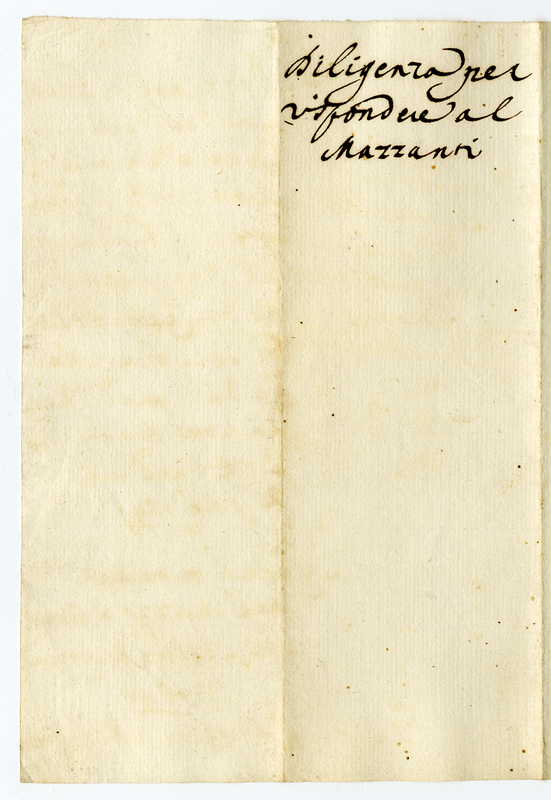 Diligenza per
rispondere al
Mazzanti